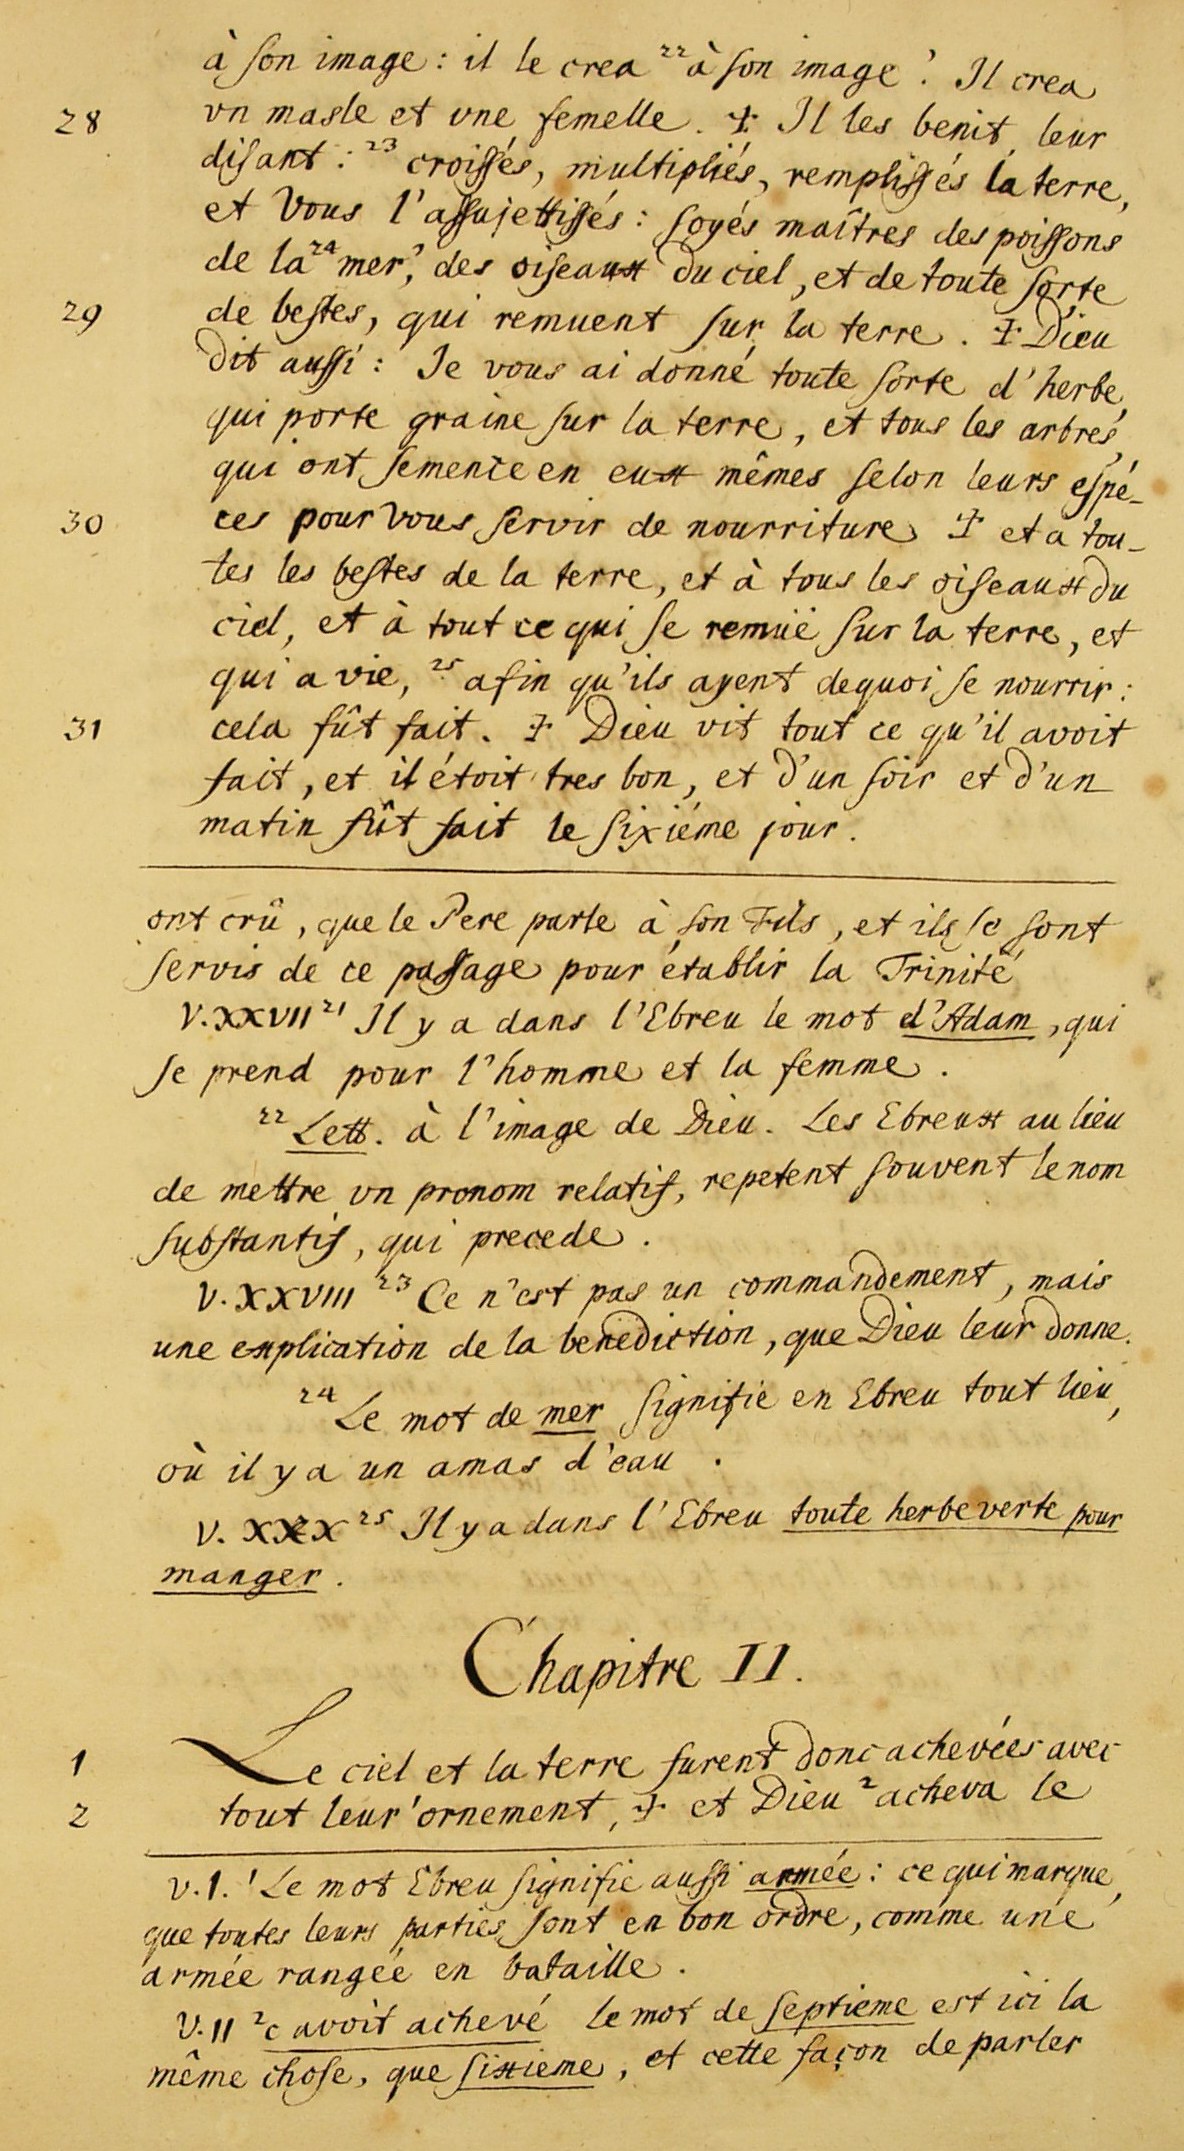 à son image : il le crea ²² à son image ? Il crea
28 vn masle et vne femelle . ‡ Il les benit, leur
disant : ²³ croissés, multipliés, remplissés la terre,
et vous l'assujettissés : soyés maîtres des poissons
de la ²⁴ mer, des oiseaux du ciel, et de toute sorte
29 de bestes, qui remuent sur la terre . ‡ Dieu
dit aussi : Je vous ai donné toute sorte d'herbe,
qui porte graine sur la terre, et tous les arbres,
qui ont semence en eux mêmes selon leurs espé-
30 ces pour vous servir de nourriture ‡ et a tou-
tes les bestes de la terre, et à tous les oiseaux du
ciel, et à tout ce qui se remuë sur la terre, et
qui a vie, ²⁵ afin qu'ils ayent dequoi se nourrir :
31 cela fût fait . ‡ Dieu vit tout ce qu'il avoit
fait, et il étoit tres bon, et d'un soir et d'un
matin fût fait le sixiéme jour .
ont crû, que le Pere parle à son Fils, et ils se sont
servis de ce passage pour établir la Trinité
V. XXVII ²¹ Il y a dans l'Ebreu le mot d'Adam, qui
se prend pour l'homme et la femme .
²² Lett. à l'image de Dieu. Les Ebreux au lieu
de mettre vn pronom relatif, repetent souvent le nom
substantif, qui precede .
V. XXVIII ²³ Ce n'est pas un commandement, mais
une explication de la benediction, que Dieu leur donne.
²⁴ Le mot de mer signifie en Ebreu tout lieu,
où il y a un amas d'eau .
V. XXX ²⁵ Il y a dans l'Ebreu toute herbe verte pour
manger .
Chapitre II .
1 Le ciel et la terre furent donc achevées avec
2 tout leur ¹ ornement, ‡ et Dieu ² acheva le
V. 1. ¹ Le mot Ebreu signifie aussi armée : ce qui marque,
que toutes leurs parties sont en bon ordre, comme une
armée rangée en bataille .
V. II ² c avoit achevé le mot de septieme est ici la
même chose, que sixieme, et cette façon de parler